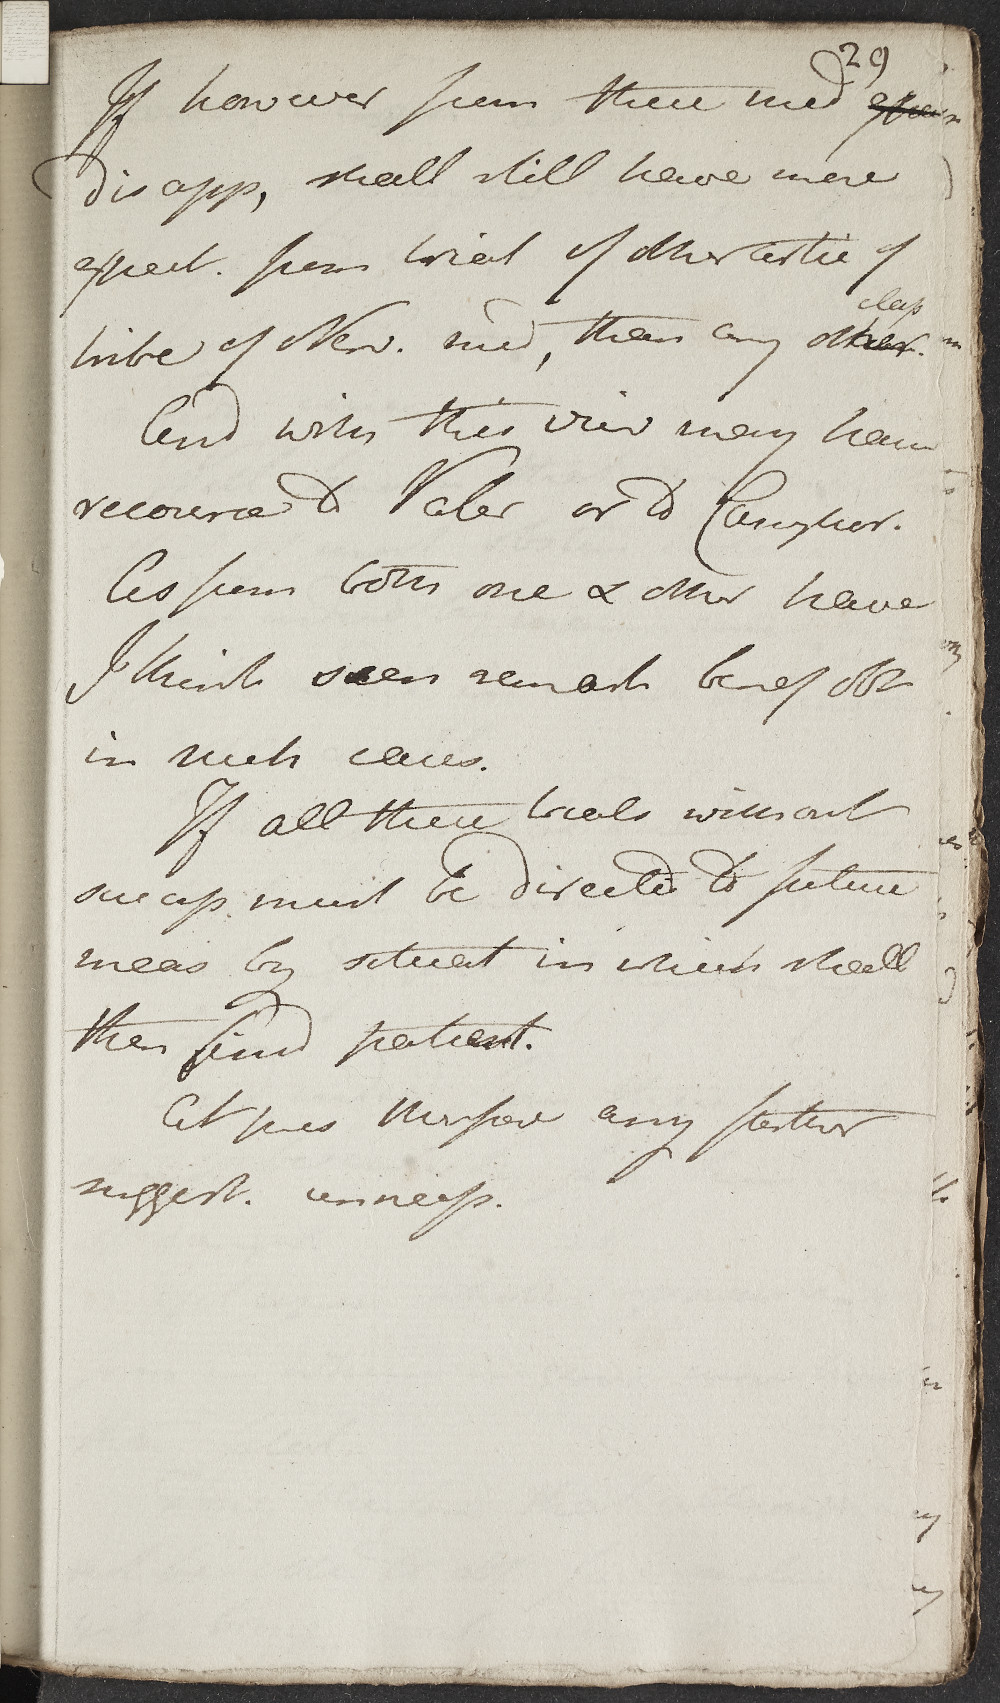 29
If however from these med
disapp, shall still have more
expect. from trial of other artic of
class
tribe of Nerv. med, than any other.
And with this view may have
recourse to Valer or to Camphor.
As from both one & other have
I think seen remark benef obt
in such cases.
If all these trials without
success must be directed to future
meas by situat in which shall
then find patient.
At pres therfore any farther
suggest. unnecess.